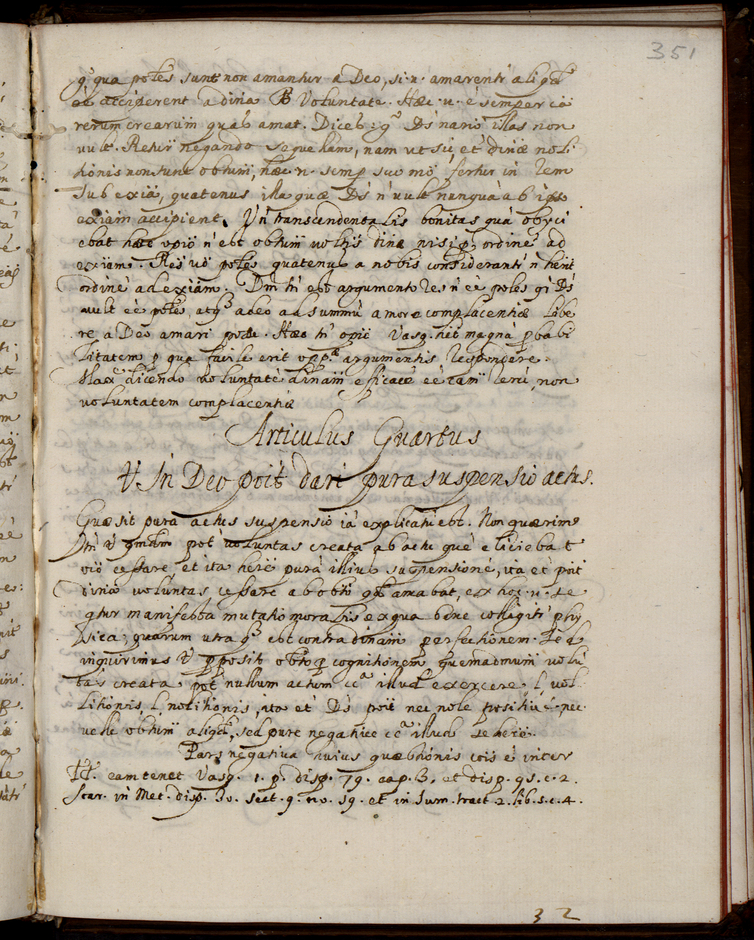 351
qua poles sunt non amantur a Deo, si .n. amarentr aliqd
eē acciperent a dina Voluntate. Hæc .n. ē semper cā
rerum crearum quas amat. Diceb: q Ds nario illas non
vult. Retur negando sequelam, nam ut sic et dinæ noli
tionis non sunt obtum, hæc .n. semp suo mō fertur in rem
sub exiā, quatenus illa quæ Ds n vult nunquā ab ipso
exiam accipient. Vn transcendentalis bonitas quā obyci
ebat hæc opio n est obtum voltis dinæ nisi p ordinē ad
exiam. Res vō poles quatenus a nobis considerantr n hent
ordinē ad exiam. Dni tn est argumento res n eē poles qi Ds
vult eē poles atq adeo ad summū amore complacentiæ libe
re a Deo amari posse. Hæc tn opio Vasq. het magnā pbabi
litatem p qua facile erit oppta argumentis respondere.
dicendo voluntatē dinam efficacē eē tam rerū, non
voluntatem complacentiæ
Articulus Quartus
V. In Deo poit dari pura suspensio actus.
Quæ sit pura actus suspensio iā explicati est. Non quærimus
tn V qmdm pot voluntas creata ab actu quē eliciebat
cessare et ita heri purā illius suspensionē, ita et poit
dina voluntas cessare ab obto qd amabat, ex hoc .n. se
qtur manifesta mutatio moralis ex qua bene colligitr phy
sica; quarum utraq est contra dinam perfectionem. Sed
inquirimus V pposit obto p cognitionem quemadmum volū
tas creata pot nullum actum cca illud exercere, l vol
litionis, l nolitionis, ita et Ds poit nec nole positiue nec
velle obtum aliqd, sed pure negatiue cca illud se here.
Pars negatiua huius quæstionis cois ē inter
TT. eam tenet Vasq. 1. p. disp. 79. cap. 3. et disp. 95. c. 2.
Suar. in Met. disp. 30. sect. 9. no. 59. et in sum. tract. 2. lib. 5. c. 4.
32